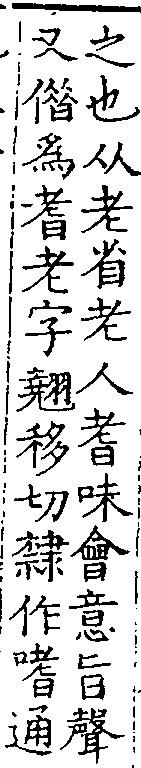 之也从老省老人耆味會意旨聲
又僭爲耆老字翹移切隸作嗜通